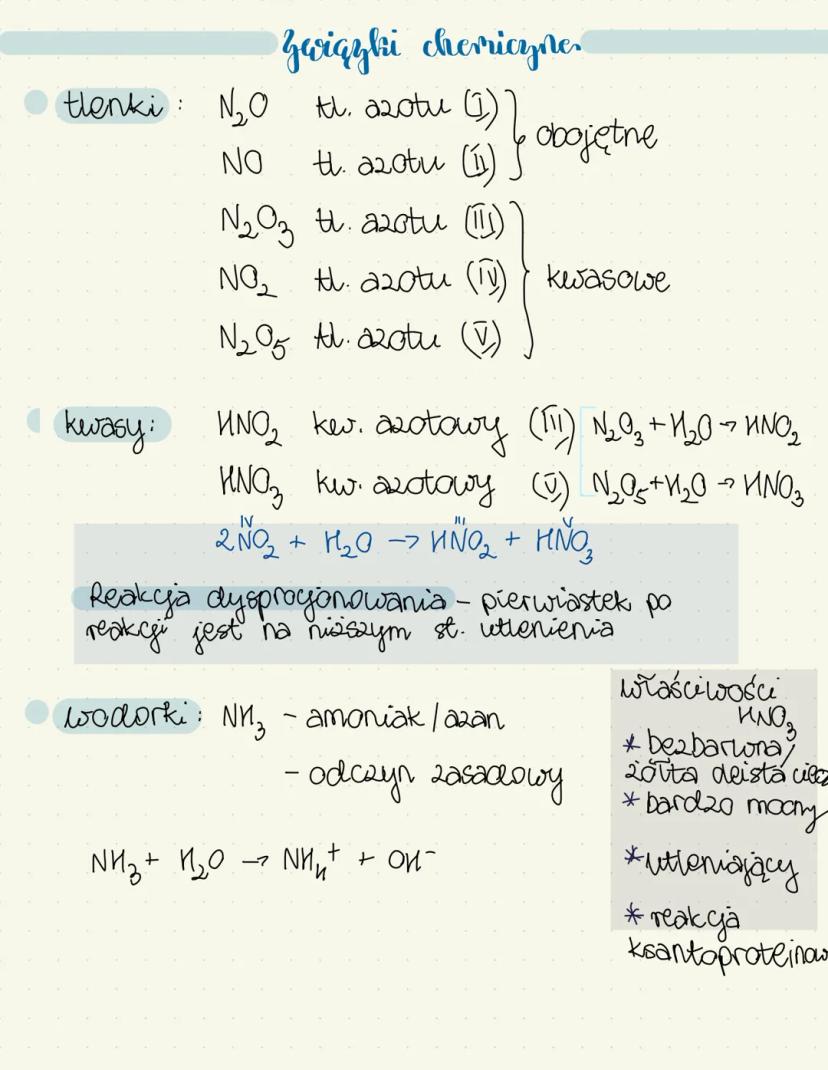 Związki chemiczne
tlenki: N₂O tl. azotu (I)
NO tl. azotu (II)
} obojętne
N₂O₃ tl. azotu (III)
NO₂ tl. azotu (IV)
N₂O₅ tl. azotu (V)
} kwasowe
kwasy: HNO₂ kw. azotowy (III) N₂O₃ + H₂O → HNO₂
HNO₃ kw. azotowy (V) N₂O₅ + H₂O → HNO₃
IV III V
2NO₂ + H₂O → HNO₂ + HNO₃
Reakcja dysprocjonowania - pierwiastek po
reakcji jest na niższym st. utlenienia
wodorki: NH₃ - amoniak / azan
- odczyn zasadowy
NH₃ + H₂O → NH₄⁺ + OH⁻
właściwości
HNO₃
* bezbarwna/
żółta oleista ciecz
* bardzo mocny
* utleniający
* reakcja
ksantoproteinow